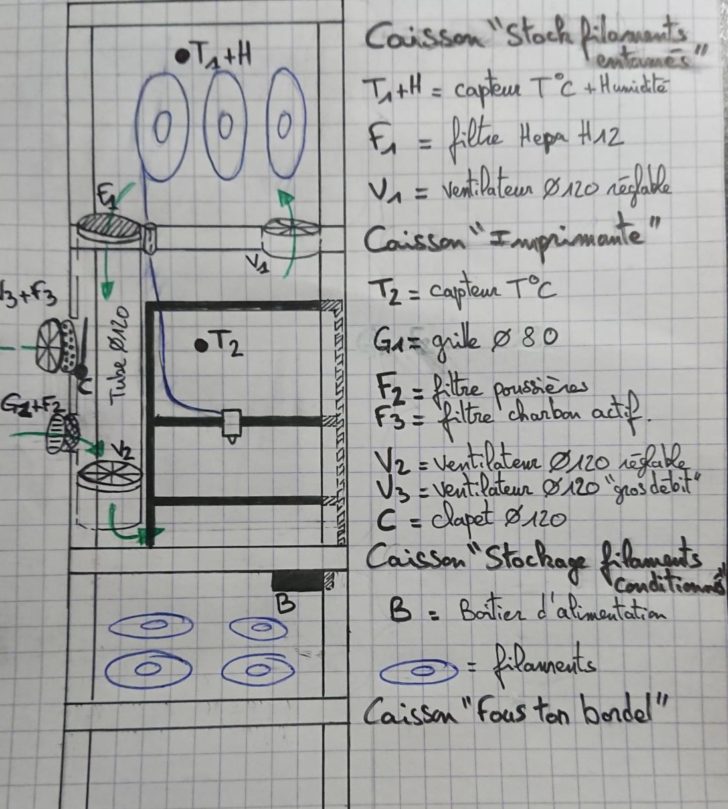 Caisson "Stock filaments
entamés"
•T1+H
T1+H = capteur T°C + Humidité
F1 = filtre Hepa H12
F1
V1 = ventilateur Ø120 réglable
Caisson "Imprimante"
V1
T2 = capteur T°C
V3+F3
Tube Ø120
•T2
G1 = grille Ø 80
C
F2 = filtre poussières
F3 = filtre charbon actif.
G1+F2
V2
V2 = ventilateur Ø120 réglable
V3 = ventilateur Ø120 "gros débit"
C = clapet Ø120
Caisson "Stockage filaments
conditionnés"
B
B = Boîtier d'alimentation
= filaments
Caisson "Fous ton bordel"